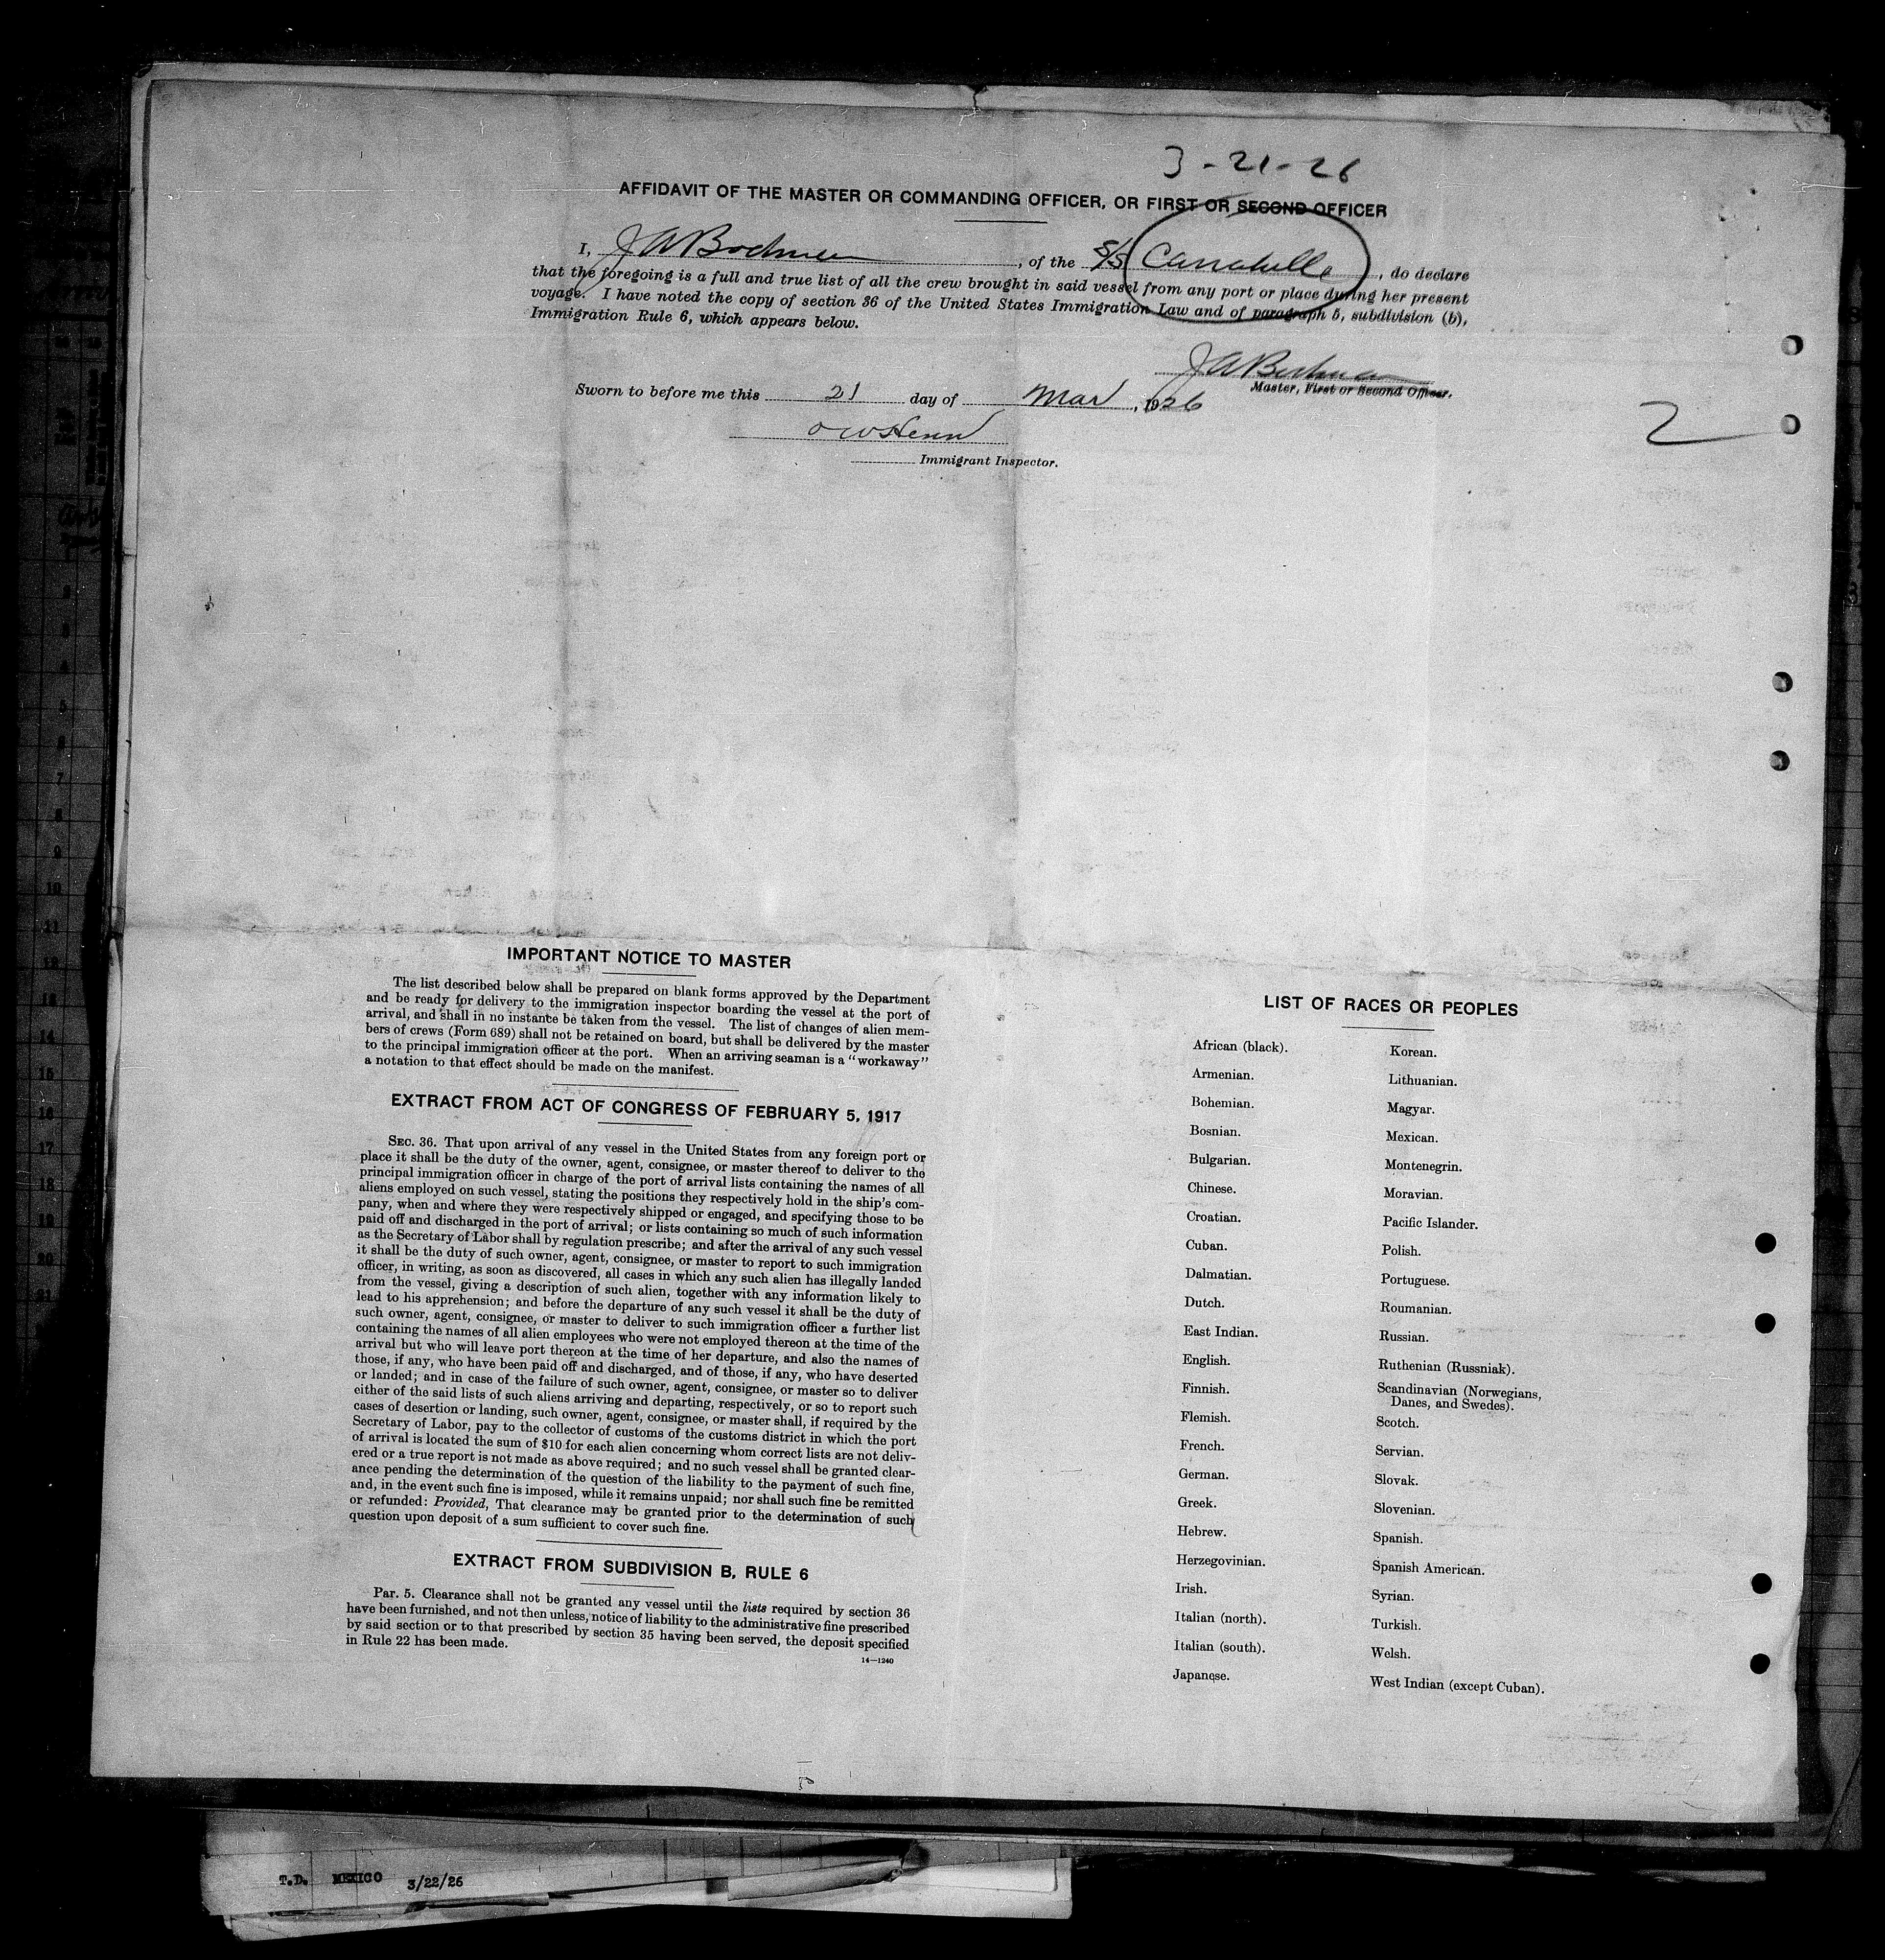 3-21-26
AFFIDAVIT OF THE MASTER OR COMMANDING OFFICER, OR FIRST OR SECOND OFFICER
I, J A Bodman, of the S/S Carrabulle, do declare
that the foregoing is a full and true list of all the crew brought in said vessel from any port or place during her present
voyage. I have noted the copy of section 36 of the United States Immigration Law and of paragraph 5, subdivision (b),
Immigration Rule 6, which appears below.
J A Bodman
Master, First or Second Officer.
Sworn to before me this 21 day of Mar, 1926
Immigrant Inspector.
2
IMPORTANT NOTICE TO MASTER
The list described below shall be prepared on blank forms approved by the Department
and be ready for delivery to the immigration inspector boarding the vessel at the port of
arrival, and shall in no instance be taken from the vessel. The list of changes of alien mem-
bers of crews (Form 689) shall not be retained on board, but shall be delivered by the master
to the principal immigration officer at the port. When an arriving seaman is a "workaway"
a notation to that effect should be made on the manifest.
EXTRACT FROM ACT OF CONGRESS OF FEBRUARY 5, 1917
SEC. 36. That upon arrival of any vessel in the United States from any foreign port or
place it shall be the duty of the owner, agent, consignee, or master thereof to deliver to the
principal immigration officer in charge of the port of arrival lists containing the names of all
aliens employed on such vessel, stating the positions they respectively hold in the ship's com-
pany, when and where they were respectively shipped or engaged, and specifying those to be
paid off and discharged in the port of arrival; or lists containing so much of such information
as the Secretary of Labor shall by regulation prescribe; and after the arrival of any such vessel
it shall be the duty of such owner, agent, consignee, or master to report to such immigration
officer, in writing, as soon as discovered, all cases in which any such alien has illegally landed
from the vessel, giving a description of such alien, together with any information likely to
lead to his apprehension; and before the departure of any such vessel it shall be the duty of
such owner, agent, consignee, or master to deliver to such immigration officer a further list
containing the names of all alien employees who were not employed thereon at the time of the
arrival but who will leave port thereon at the time of her departure, and also the names of
those, if any, who have been paid off and discharged, and of those, if any, who have deserted
or landed; and in case of the failure of such owner, agent, consignee, or master so to deliver
either of the said lists of such aliens arriving and departing, respectively, or so to report such
cases of desertion or landing, such owner, agent, consignee, or master shall, if required by the
Secretary of Labor, pay to the collector of customs of the customs district in which the port
of arrival is located the sum of $10 for each alien concerning whom correct lists are not deliv-
ered or a true report is not made as above required; and no such vessel shall be granted clear-
ance pending the determination of the question of the liability to the payment of such fine,
and, in the event such fine is imposed, while it remains unpaid; nor shall such fine be remitted
or refunded: Provided, That clearance may be granted prior to the determination of such
question upon deposit of a sum sufficient to cover such fine.
EXTRACT FROM SUBDIVISION B, RULE 6
Par. 5. Clearance shall not be granted any vessel until the lists required by section 36
have been furnished, and not then unless, notice of liability to the administrative fine prescribed
by said section or to that prescribed by section 35 having been served, the deposit specified
in Rule 22 has been made.
14—1240
LIST OF RACES OR PEOPLES
African (black).
Armenian.
Bohemian.
Bosnian.
Bulgarian.
Chinese.
Croatian.
Cuban.
Dalmatian.
Dutch.
East Indian.
English.
Finnish.
Flemish.
French.
German.
Greek.
Hebrew.
Herzegovinian.
Irish.
Italian (north).
Italian (south).
Japanese.
Korean.
Lithuanian.
Magyar.
Mexican.
Montenegrin.
Moravian.
Pacific Islander.
Polish.
Portuguese.
Roumanian.
Russian.
Ruthenian (Russniak).
Scandinavian (Norwegians,
Danes, and Swedes).
Scotch.
Servian.
Slovak.
Slovenian.
Spanish.
Spanish American.
Syrian.
Turkish.
Welsh.
West Indian (except Cuban).
T.D. MEXICO 3/22/26